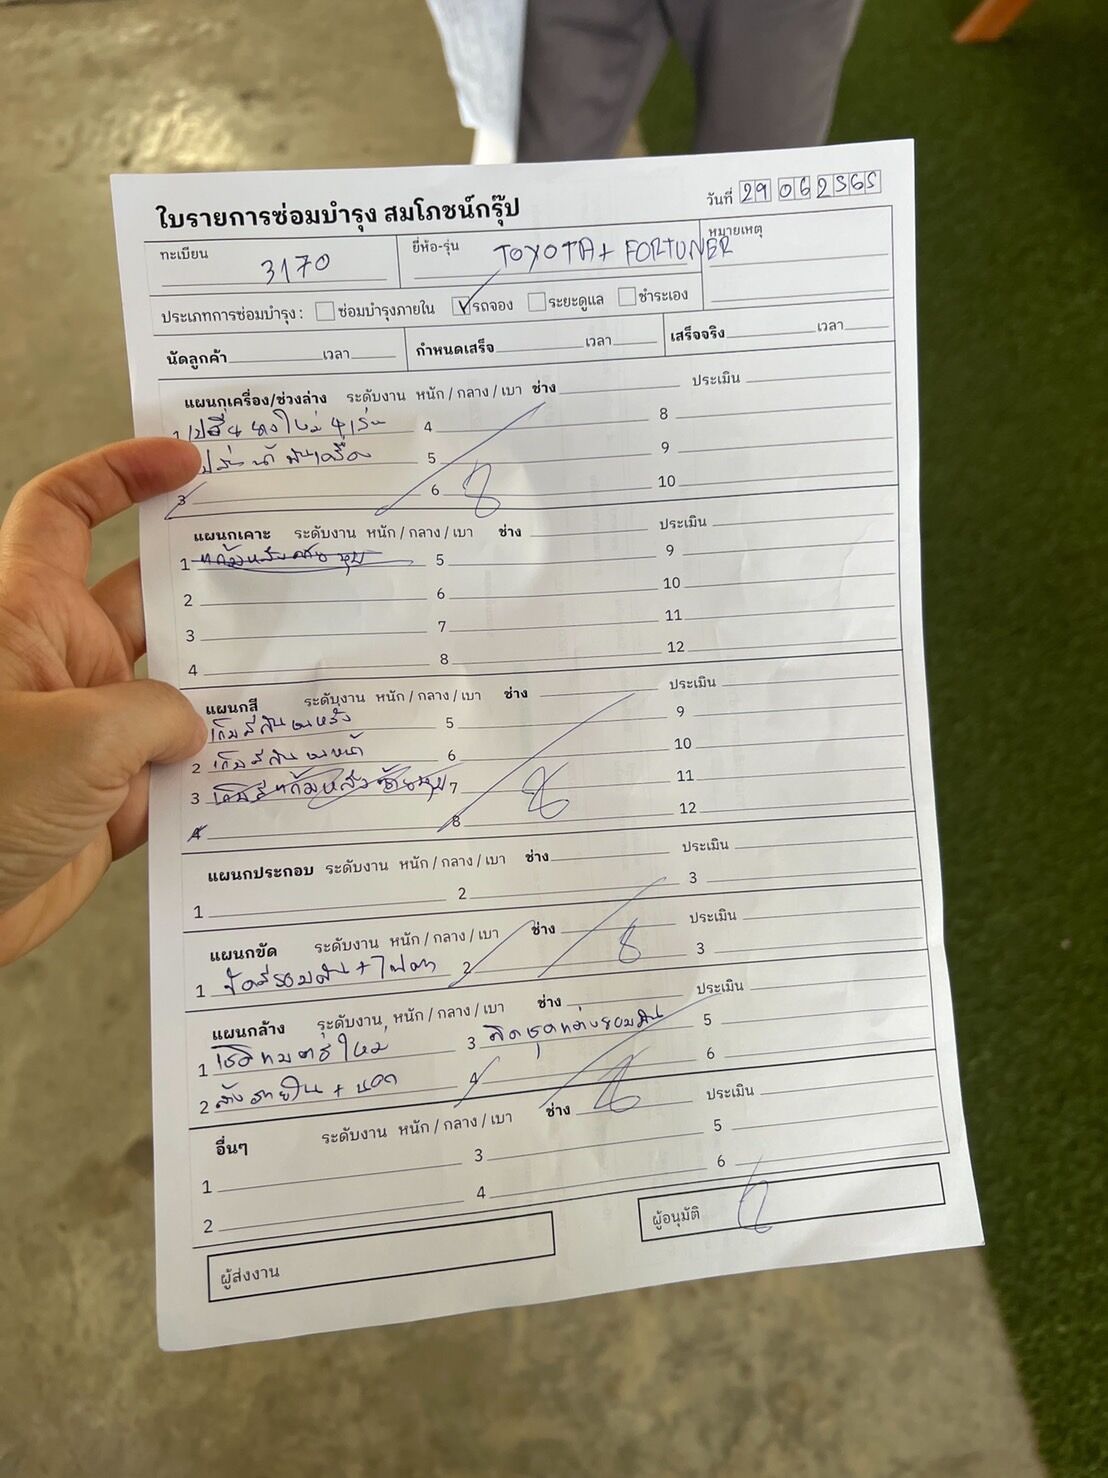 ใบรายการซ่อมบำรุง สมโภชน์กรุ๊ป
วันที่ 29 06 2565
ทะเบียน 3170
ยี่ห้อ-รุ่น TOYOTA + FORTUNER
หมายเหตุ
ประเภทการซ่อมบำรุง : ซ่อมบำรุงภายใน รถจอง ระยะดูแล ชำระเอง
นัดลูกค้า เวลา กำหนดเสร็จ เวลา เสร็จจริง เวลา
แผนกเครื่อง/ช่วงล่าง ระดับงาน หนัก / กลาง / เบา ช่าง ประเมิน
1 4 8
5 9
3 6 10
แผนกเคาะ ระดับงาน หนัก / กลาง / เบา ช่าง ประเมิน
1 5 9
2 6 10
3 7 11
4 8 12
แผนกสี ระดับงาน หนัก / กลาง / เบา ช่าง ประเมิน
เก็บสีกันชนหลัง 5 9
2 เก็บสีกันชนหน้า 6 10
3 7 11
4 8 12
แผนกประกอบ ระดับงาน หนัก / กลาง / เบา ช่าง ประเมิน
1 2 3
แผนกขัด ระดับงาน หนัก / กลาง / เบา ช่าง ประเมิน
1 ขัดสีรอบคัน + ไฟตา 2 3
แผนกล้าง ระดับงาน หนัก / กลาง / เบา ช่าง ประเมิน
1 3 5
2 ล้างภายใน + นอก 4 6
อื่นๆ ระดับงาน หนัก / กลาง / เบา ช่าง ประเมิน
1 3 5
2 4 6
ผู้ส่งงาน
ผู้อนุมัติ